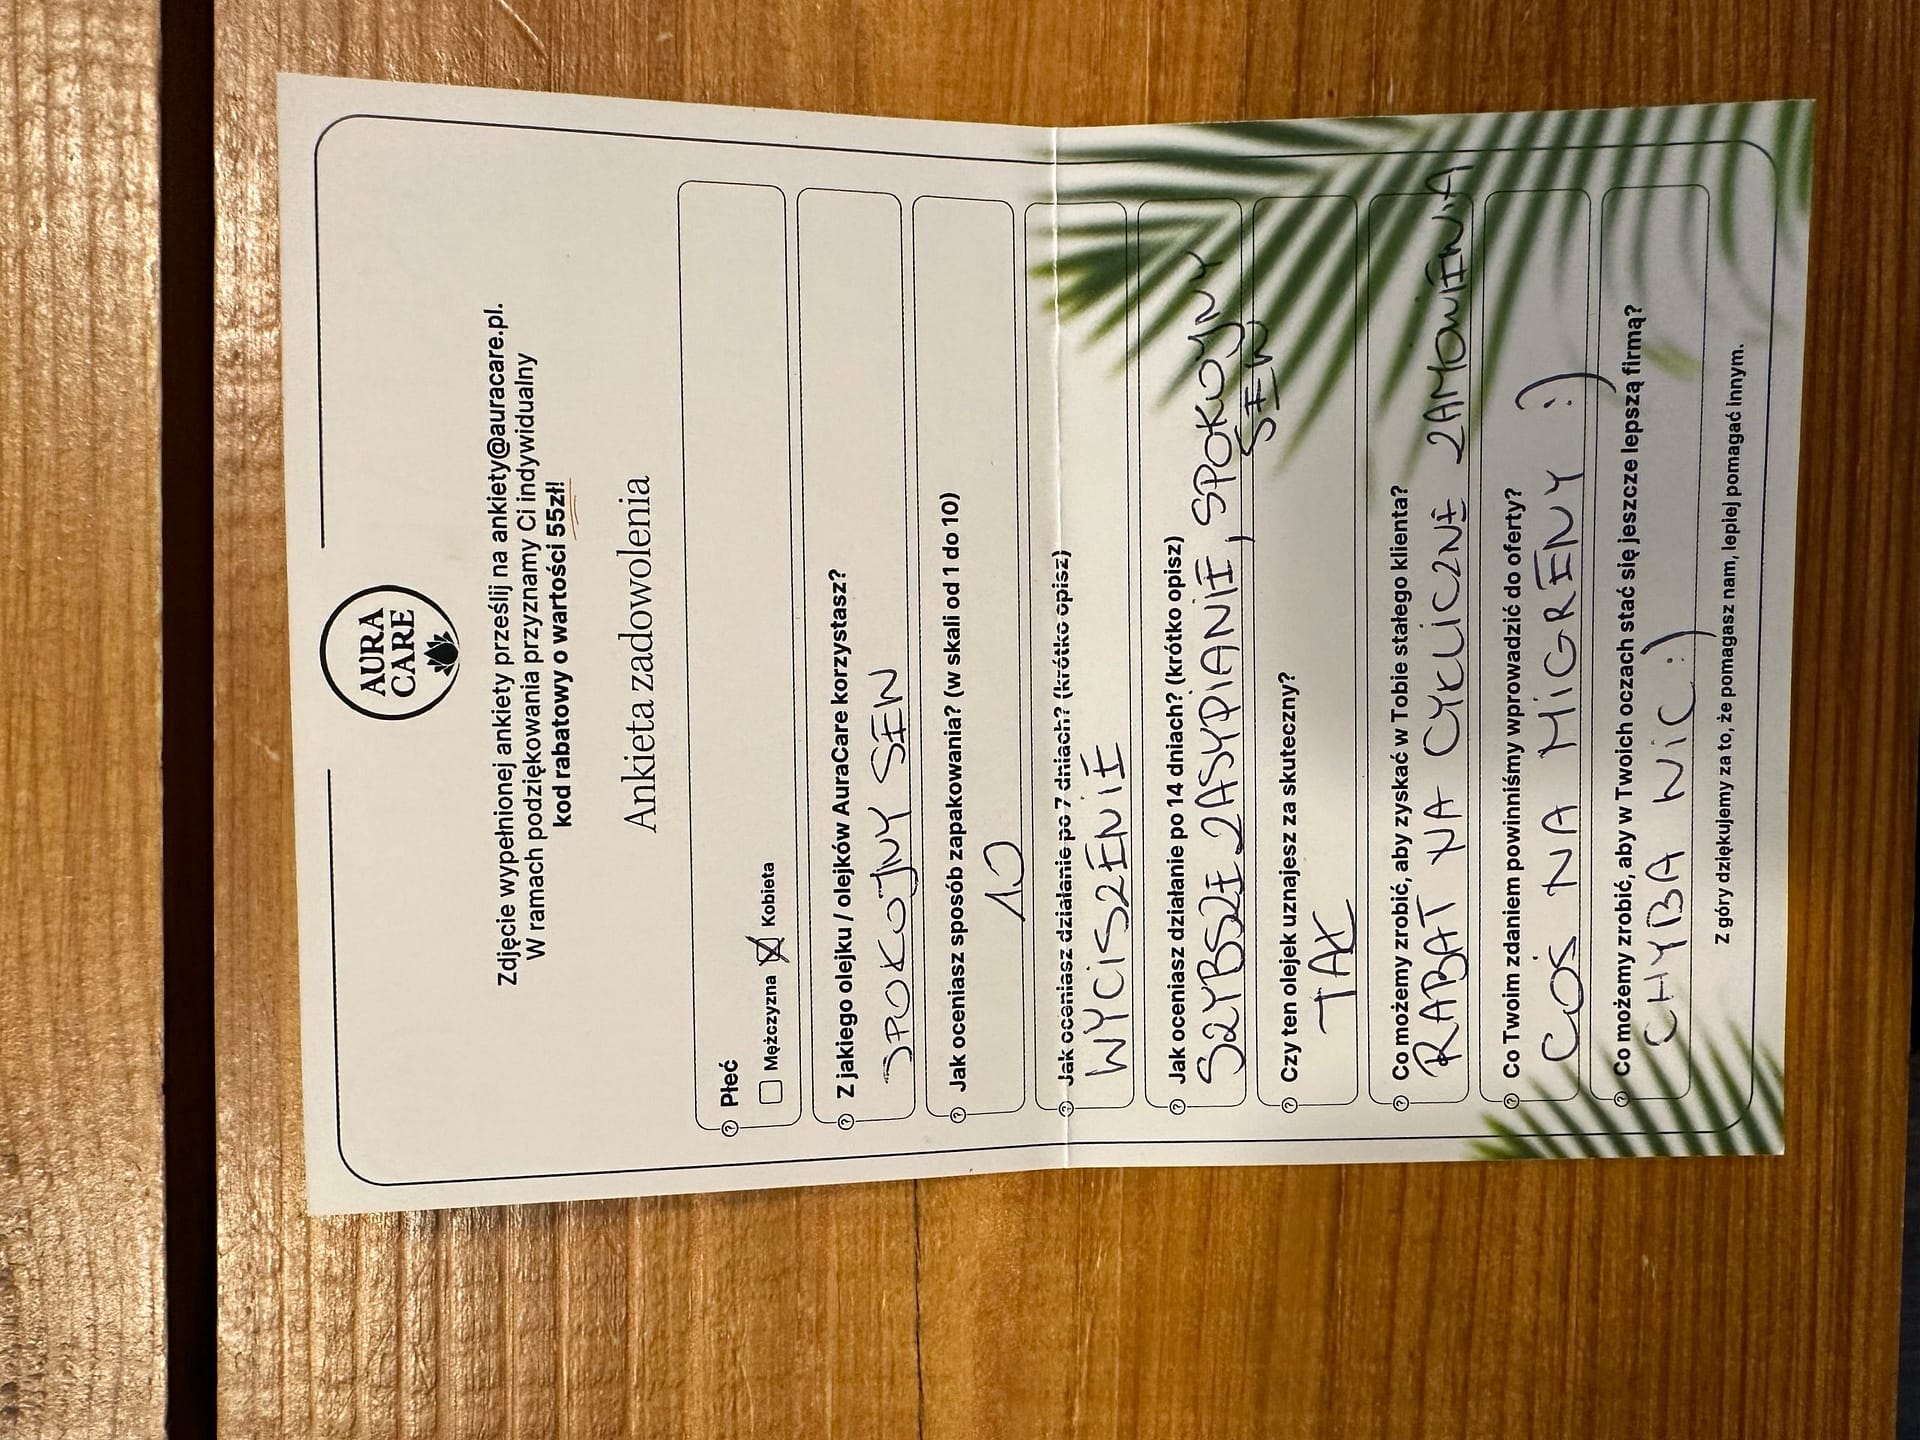 AURA
CARE
Zdjęcie wypełnionej ankiety prześlij na ankiety@auracare.pl.
W ramach podziękowania przyznamy Ci indywidualny
kod rabatowy o wartości 55zł!
Ankieta zadowolenia
Płeć
Mężczyzna Kobieta
Z jakiego olejku / olejków AuraCare korzystasz?
SPOKOJNY SEN
Jak oceniasz sposób zapakowania? (w skali od 1 do 10)
10
Jak oceniasz działanie po 7 dniach? (krótko opisz)
WYCISZENIE
Jak oceniasz działanie po 14 dniach? (krótko opisz)
SZYBSZE ZASYPIANIE, SPOKOJNY
SEN
Czy ten olejek uznajesz za skuteczny?
TAK
Co możemy zrobić, aby zyskać w Tobie stałego klienta?
RABAT NA CYKLICZNE ZAMOWIENIA
Co Twoim zdaniem powinniśmy wprowadzić do oferty?
COŚ NA MIGRENY :)
Co możemy zrobić, aby w Twoich oczach stać się jeszcze lepszą firmą?
CHYBA NIC :)
Z góry dziękujemy za to, że pomagasz nam, lepiej pomagać innym.